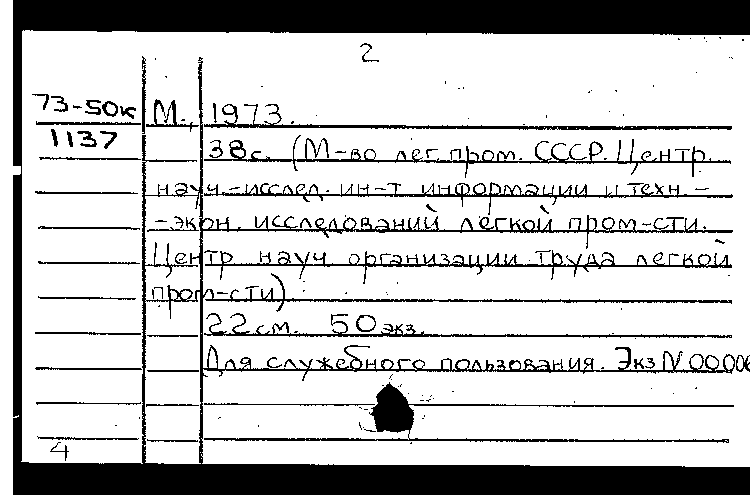 2
73-50к М., 1973.
1137
38с. (М-во лег. пром. СССР. Центр.
науч.-исслед. ин-т информации и техн.-
-экон. исследований легкой пром-сти.
Центр науч. организации труда легкой
пром-сти).
22 см. 50 экз.
Для служебного пользования. Экз N
4